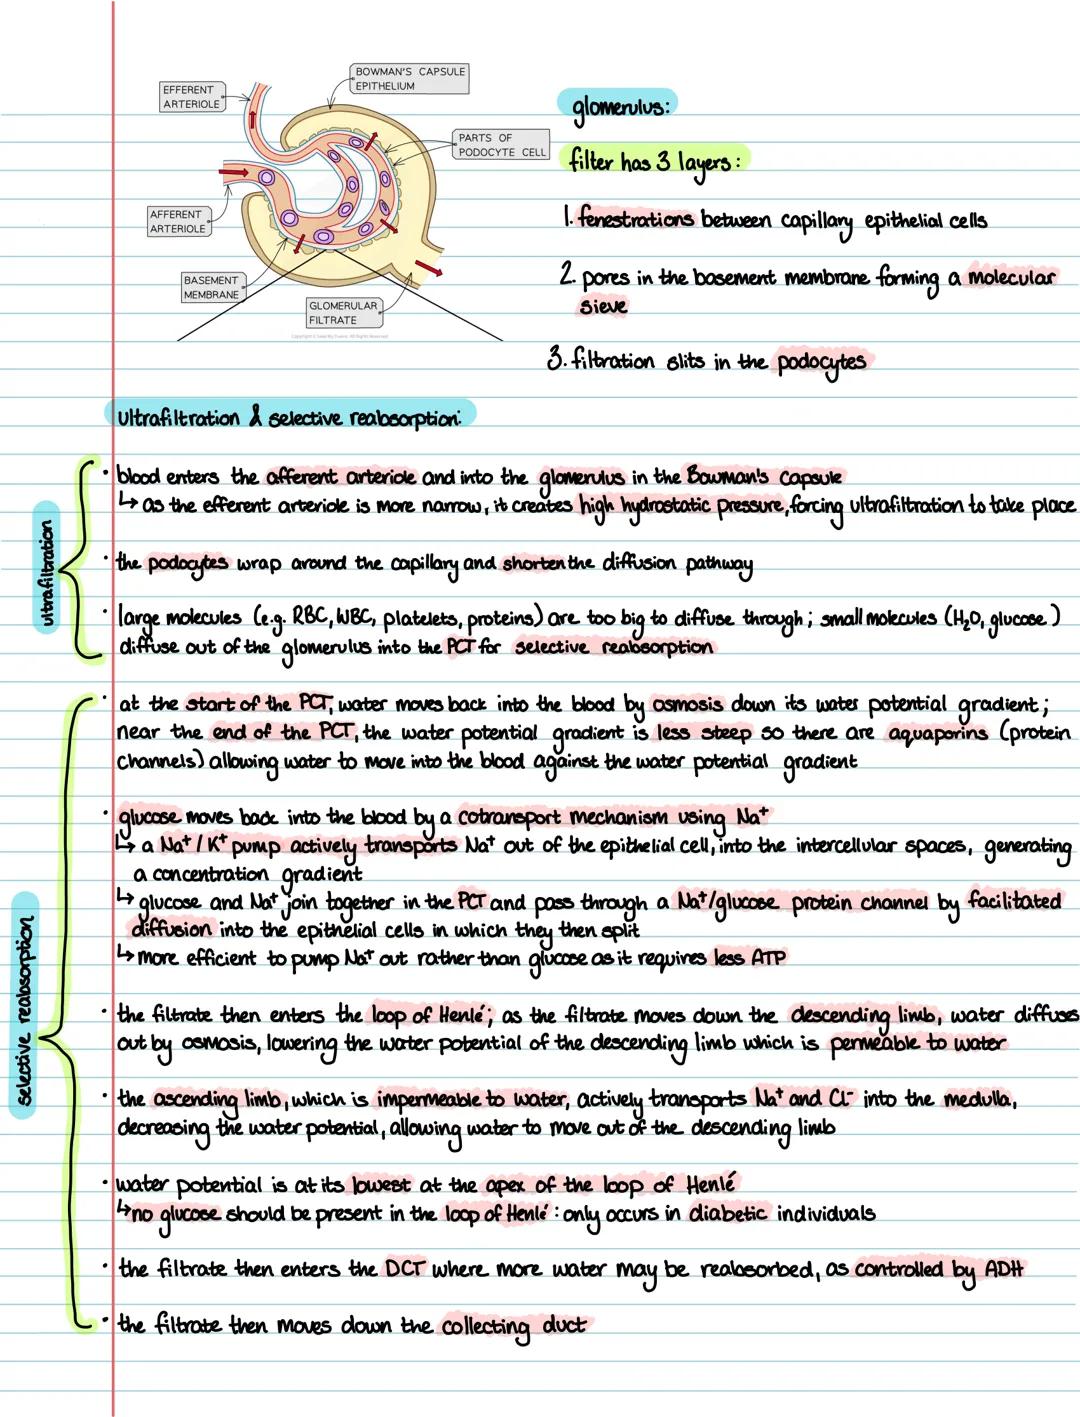 EFFERENT
ARTERIOLE
BOWMAN'S CAPSULE
EPITHELIUM
PARTS OF
PODOCYTE CELL
AFFERENT
ARTERIOLE
BASEMENT
MEMBRANE
GLOMERULAR
FILTRATE
Copyright © Save My Exams. All Rights Reserved
glomerulus:
filter has 3 layers:
1. fenestrations between capillary epithelial cells
2. pores in the basement membrane forming a molecular
sieve
3. filtration slits in the podocytes
ultrafiltration & selective reabsorption:
ultrafiltration
· blood enters the afferent arteriole and into the glomerulus in the Bowman's capsule
↳ as the efferent arteriole is more narrow, it creates high hydrostatic pressure, forcing ultrafiltration to take place
· the podocytes wrap around the capillary and shorten the diffusion pathway
· large molecules (e.g. RBC, WBC, platelets, proteins) are too big to diffuse through; small molecules (H₂O, glucose)
diffuse out of the glomerulus into the PCT for selective reabsorption
selective reabsorption
· at the start of the PCT, water moves back into the blood by osmosis down its water potential gradient;
near the end of the PCT, the water potential gradient is less steep so there are aquaporins (protein
channels) allowing water to move into the blood against the water potential gradient
· glucose moves back into the blood by a cotransport mechanism using Na⁺
↳ a Na⁺/K⁺ pump actively transports Na⁺ out of the epithelial cell, into the intercellular spaces, generating
a concentration gradient
↳ glucose and Na⁺ join together in the PCT and pass through a Na⁺/glucose protein channel by facilitated
diffusion into the epithelial cells in which they then split
↳ more efficient to pump Na⁺ out rather than glucose as it requires less ATP
· the filtrate then enters the loop of Henlé; as the filtrate moves down the descending limb, water diffuses
out by osmosis, lowering the water potential of the descending limb which is permeable to water
· the ascending limb, which is impermeable to water, actively transports Na⁺ and Cl⁻ into the medulla,
decreasing the water potential, allowing water to move out of the descending limb
· water potential is at its lowest at the apex of the loop of Henlé
↳ no glucose should be present in the loop of Henlé: only occurs in diabetic individuals
· the filtrate then enters the DCT where more water may be reabsorbed, as controlled by ADH
· the filtrate then moves down the collecting duct